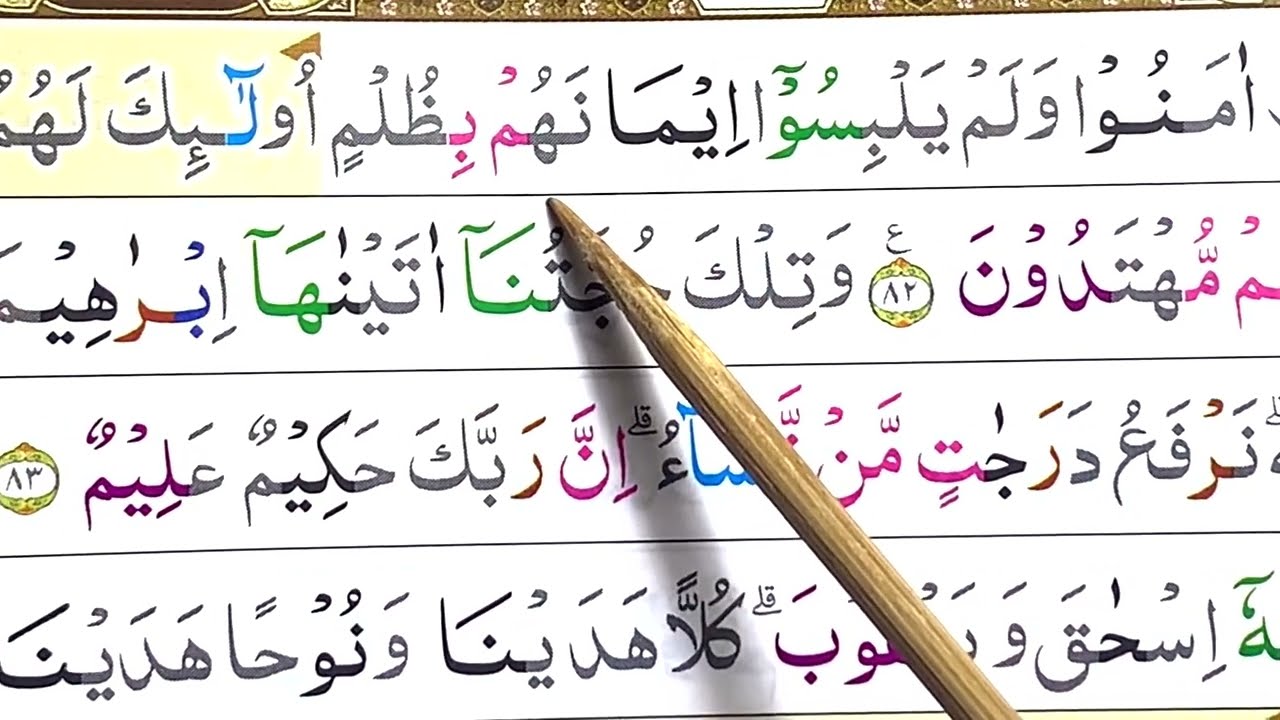 اٰمَنُوْا وَلَمْ يَلْبِسُوْۤا اِيْمَا نَهُمْ بِظُلْمٍ اُولٰٓئِكَ لَهُمُ
مُّهْتَدُوْنَ ۝٨٢ ع وَتِلْكَ حُجَّتُنَاۤ اٰتَيْنٰهَاۤ اِبْرٰهِيْمَ
نَرْفَعُ دَرَجٰتٍ مَّنْ نَّشَآءُ ؕ اِنَّ رَبَّكَ حَكِيْمٌ عَلِيْمٌ ۝٨٣
اِسْحٰقَ وَ يَعْقُوْبَ ؕ كُلًّا هَدَيْنَا وَ نُوْحًا هَدَيْنَا